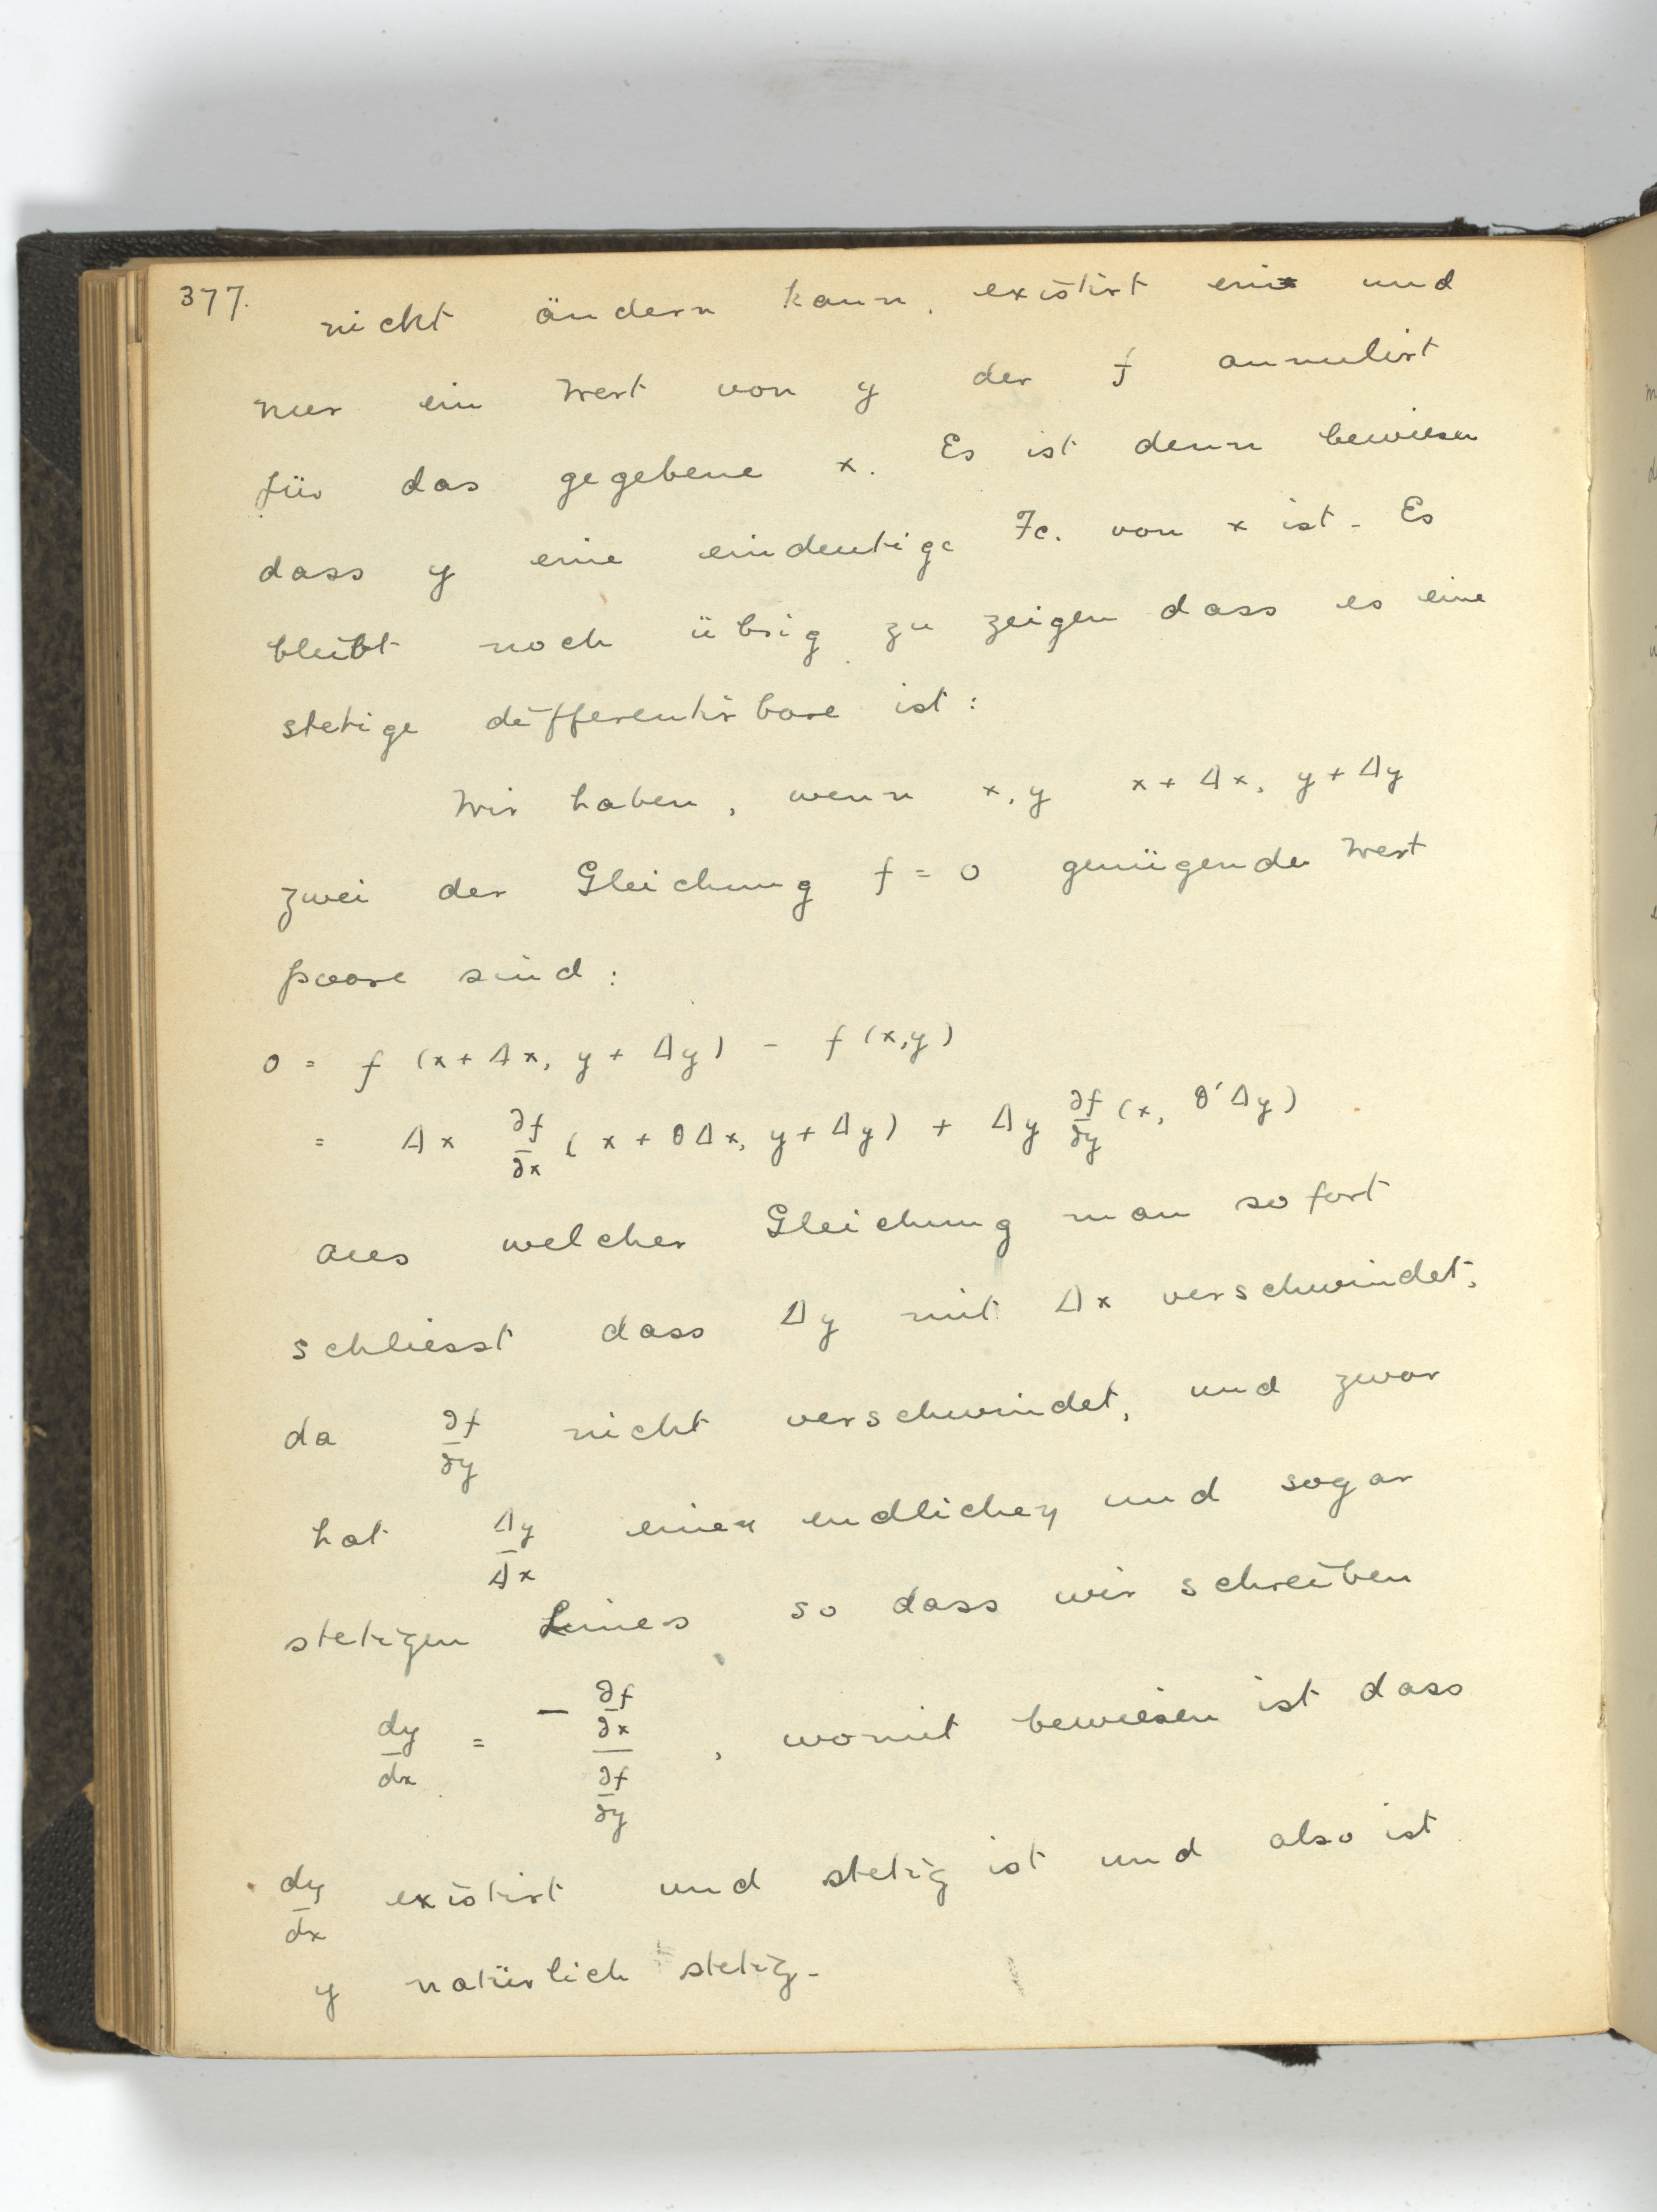 377.
nicht ändern kann, existirt ein und
nur ein Wert von y der f annulirt
für das gegebene x. Es ist denn bewiesen
dass y eine eindeutige Fc. von x ist. Es
bleibt noch übrig zu zeigen dass es eine
stetige differentirbare ist:
Wir haben, wenn x, y x + Δx, y + Δy
zwei der Gleichung f = 0 genügende Wert
paare sind:
0 = f (x + Δx, y + Δy) - f (x, y)
= Δx ∂f/∂x (x + θΔx, y + Δy) + Δy ∂f/∂y (x, θ'Δy)
aus welcher Gleichung man sofort
schliesst dass Δy mit Δx verschwindet,
da ∂f/∂y nicht verschwindet, und zwar
hat Δy/Δx einen endlichen und sogar
stetigen Limes so dass wir schreiben
dy/dx = - ∂f/∂x / ∂f/∂y, womit bewiesen ist dass
dy/dx existirt und stetig ist und also ist
y natürlich stetig.